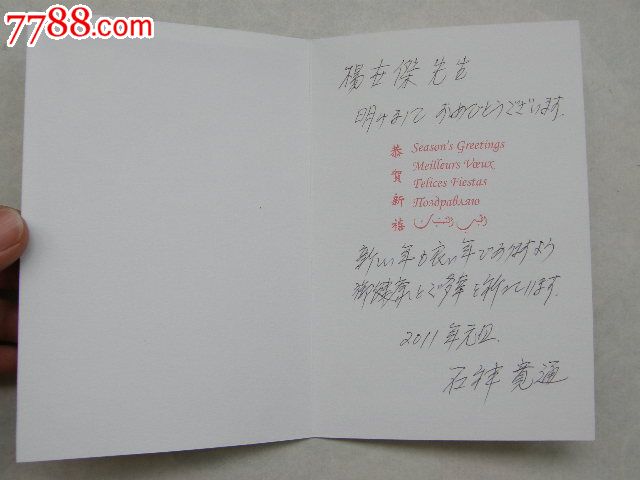 7788.com
楊世傑先生
明けまして おめでとうございます。
恭賀新禧
Season's Greetings
Meilleurs Vœux
Felices Fiestas
Поздравляю
新しい年も良い年でありますよう
御健康とご多幸を祈っています。
2011年元旦.
石井寛通